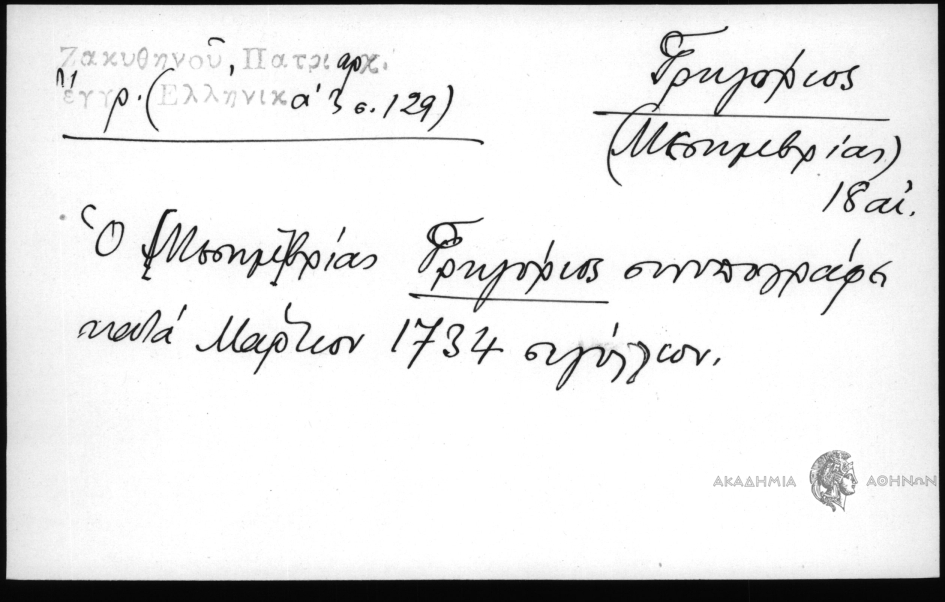 Ζακυθηνοῦ, Πατριαρχ.
ἔγγρ. (Ἑλληνικά 3 σ. 129)
Γρηγόριος
(Μεσημβρίας)
18 αἰ.
Ὁ Μεσημβρίας Γρηγόριος συνυπογράφει
κατά Μάρτιον 1734 σιγίλλιον.
ΑΚΑΔΗΜΙΑ ΑΘΗΝΩΝ